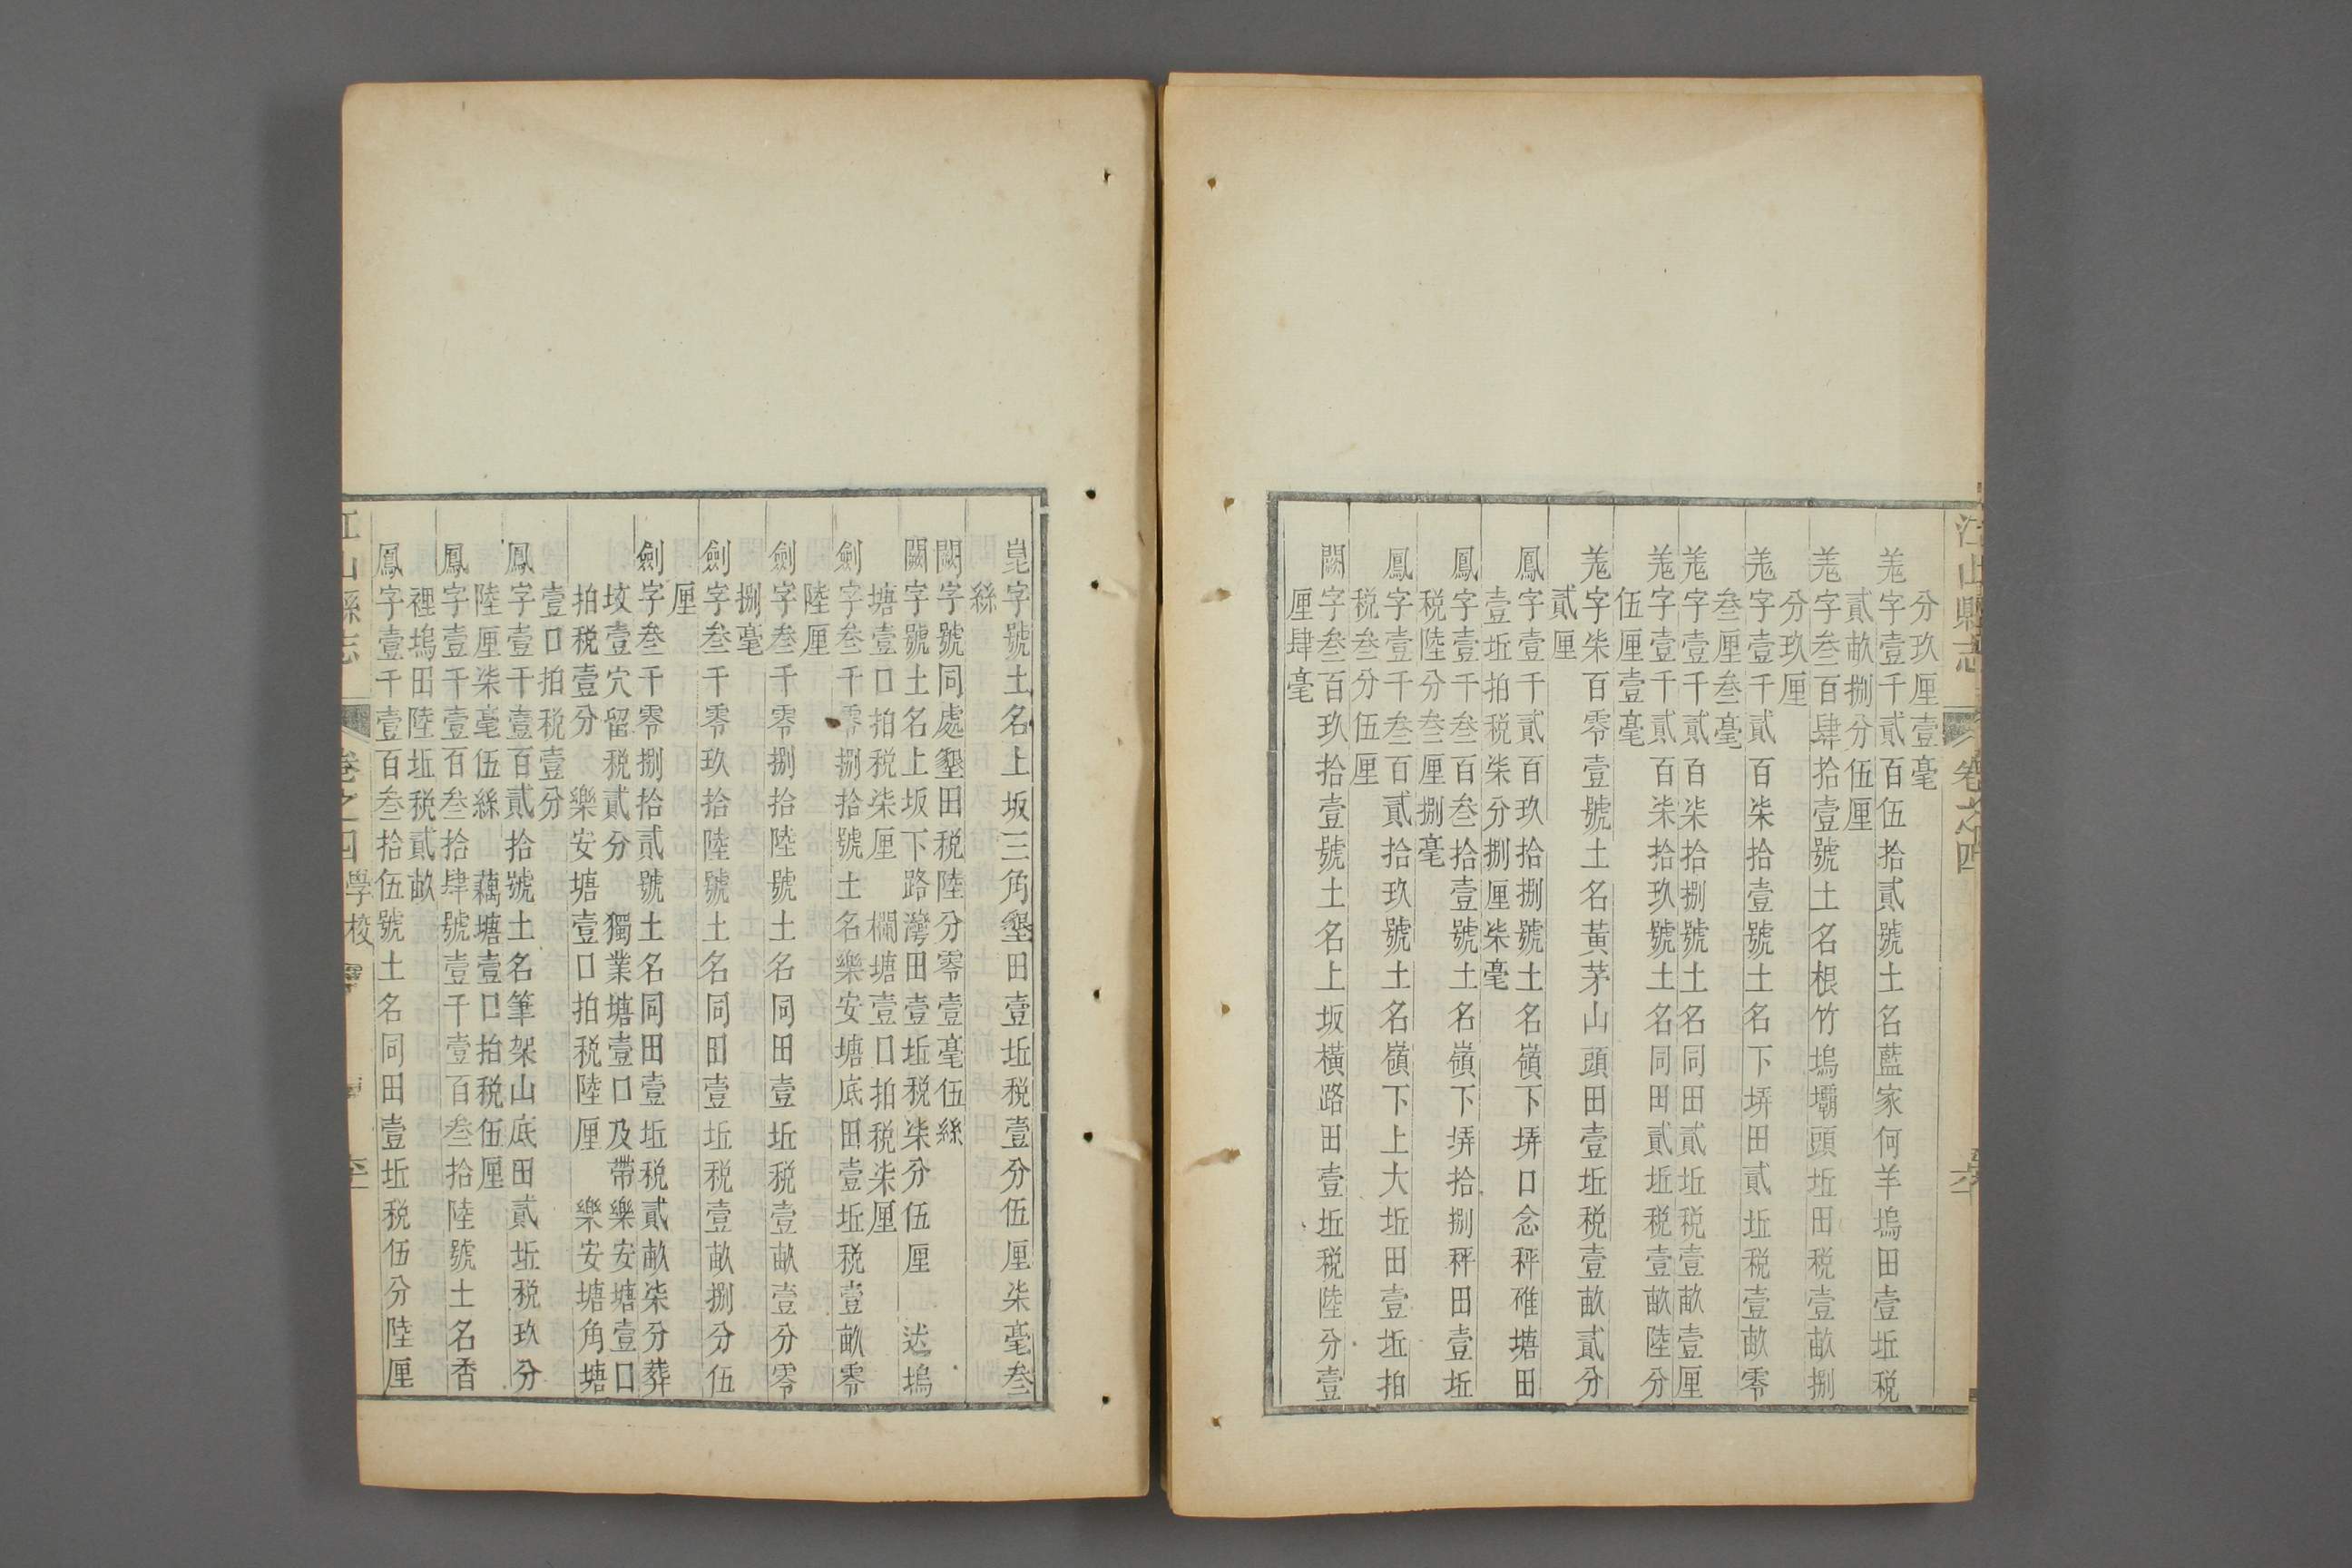 江山縣志 卷之四
分玖厘壹毫
羗字壹千貳百伍拾貳號土名藍家何羊塢田壹坵税
貳畝捌分伍厘
羗字叁百肆拾壹號土名根竹塢壩頭坵田税壹畝捌
分玖厘
羗字壹千貳百柒拾壹號土名下塝田貳坵税壹畝零
叁厘叁毫
羗字壹千貳百柒拾捌號土名同田貳坵税壹畝壹厘
羗字壹千貳百柒拾玖號土名同田貳坵税壹畝陸分
伍厘壹毫
羗字柒百零壹號土名黃茅山頭田壹坵税壹畝貳分
貳厘
鳳字壹千貳百玖拾捌號土名嶺下塝口念秤碓塘田
壹坵拍税柒分捌厘柒毫
鳳字壹千叁百叁拾壹號土名嶺下塝拾捌秤田壹坵
税陸分叁厘捌毫
鳳字壹千叁百貳拾玖號土名嶺下上大坵田壹坵拍
税叁分伍厘
闕字叁百玖拾壹號土名上坂橫路田壹坵税陸分壹
厘肆毫
崑字號土名上坂三角墾田壹坵税壹分伍厘柒毫叁
絲
闕字號同處墾田税陸分零壹毫伍絲
闕字號土名上坂下路灣田壹坵税柒分伍厘 迏塢
塘壹口拍税柒厘 欄塘壹口拍税柒厘
劍字叁千零捌拾號土名樂安塘底田壹坵税壹畝零
陸厘
劍字叁千零捌拾陸號土名同田壹坵税壹畝壹分零
捌毫
劍字叁千零玖拾陸號土名同田壹坵税壹畝捌分伍
厘
劍字叁千零捌拾貳號土名同田壹坵税貳畝柒分葬
坟壹穴留税貳分 獨業塘壹口及帶樂安塘壹口
拍税壹分 樂安塘壹口拍税陸厘 樂安塘角塘
壹口拍税壹分
鳳字壹千壹百貳拾號土名筆架山底田貳坵税玖分
陸厘柒毫伍絲 藕塘壹口拍税伍厘
鳳字壹千壹百叁拾肆號壹千壹百叁拾陸號土名香
裡塢田陸坵税貳畝
鳳字壹千壹百叁拾伍號土名同田壹坵税伍分陸厘
江山縣志 卷之四 學校